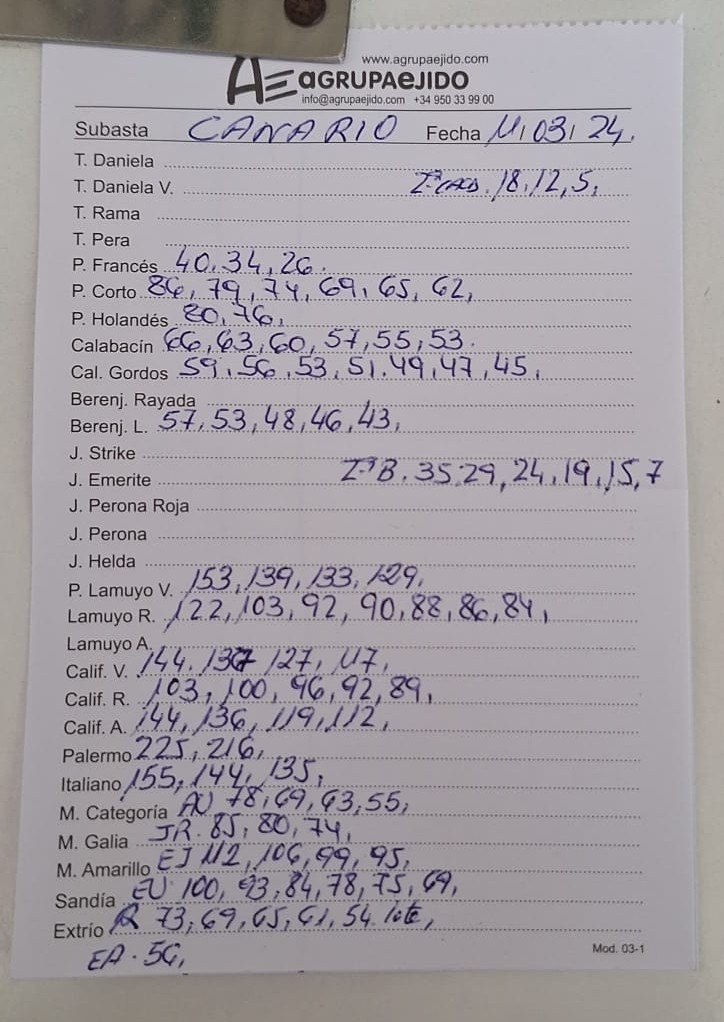 www.agrupaejido.com
AE aGRUPAeJIDO
info@agrupaejido.com +34 950 33 99 00
Subasta CANARIO Fecha 11/03/24.
T. Daniela
T. Daniela V. 18,12,5,
T. Rama
T. Pera
P. Francés 40,34,26.
P. Corto 86,79,74,69,65,62,
P. Holandés 80,76,
Calabacín 66,63,60,57,55,53.
Cal. Gordos 59,56,53,51,49,47,45,
Berenj. Rayada
Berenj. L. 57,53,48,46,43,
J. Strike
J. Emerite B. 35,29,24,19,15,7
J. Perona Roja
J. Perona
J. Helda
P. Lamuyo V. 153,139,133,129,
Lamuyo R. 122,103,92,90,88,86,84,
Lamuyo A.
Calif. V. 144. 127, 117,
Calif. R. 103,100,96,92,89,
Calif. A. 144,136,119,112,
Palermo 225,216,
Italiano 155,144,135,
M. Categoría 78,69,63,55,
M. Galia JR. 85,80,74,
M. Amarillo EJ 112,106,99,95,
Sandía EU 100,93,84,78,75,69,
Extrío R 73,69,65,61,54 lote,
EA. 56,
Mod. 03-1